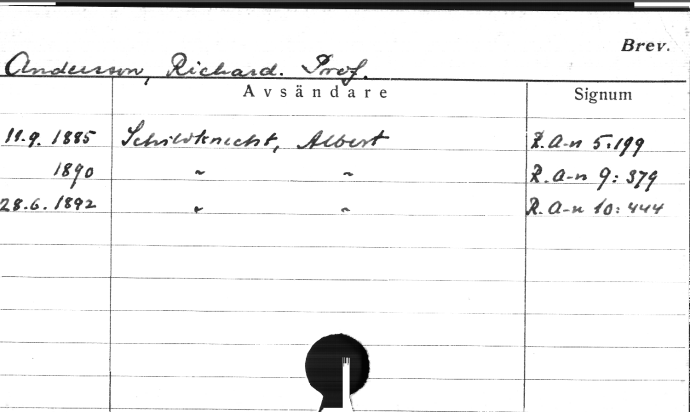 Brev.
Andersson, Richard. Prof.
Avsändare Signum
11.9. 1885 Schildknecht, Albert R.A-n 5:199
1890 " " R.A-n 9:379
28.6.1892 " " R.A-n 10:444